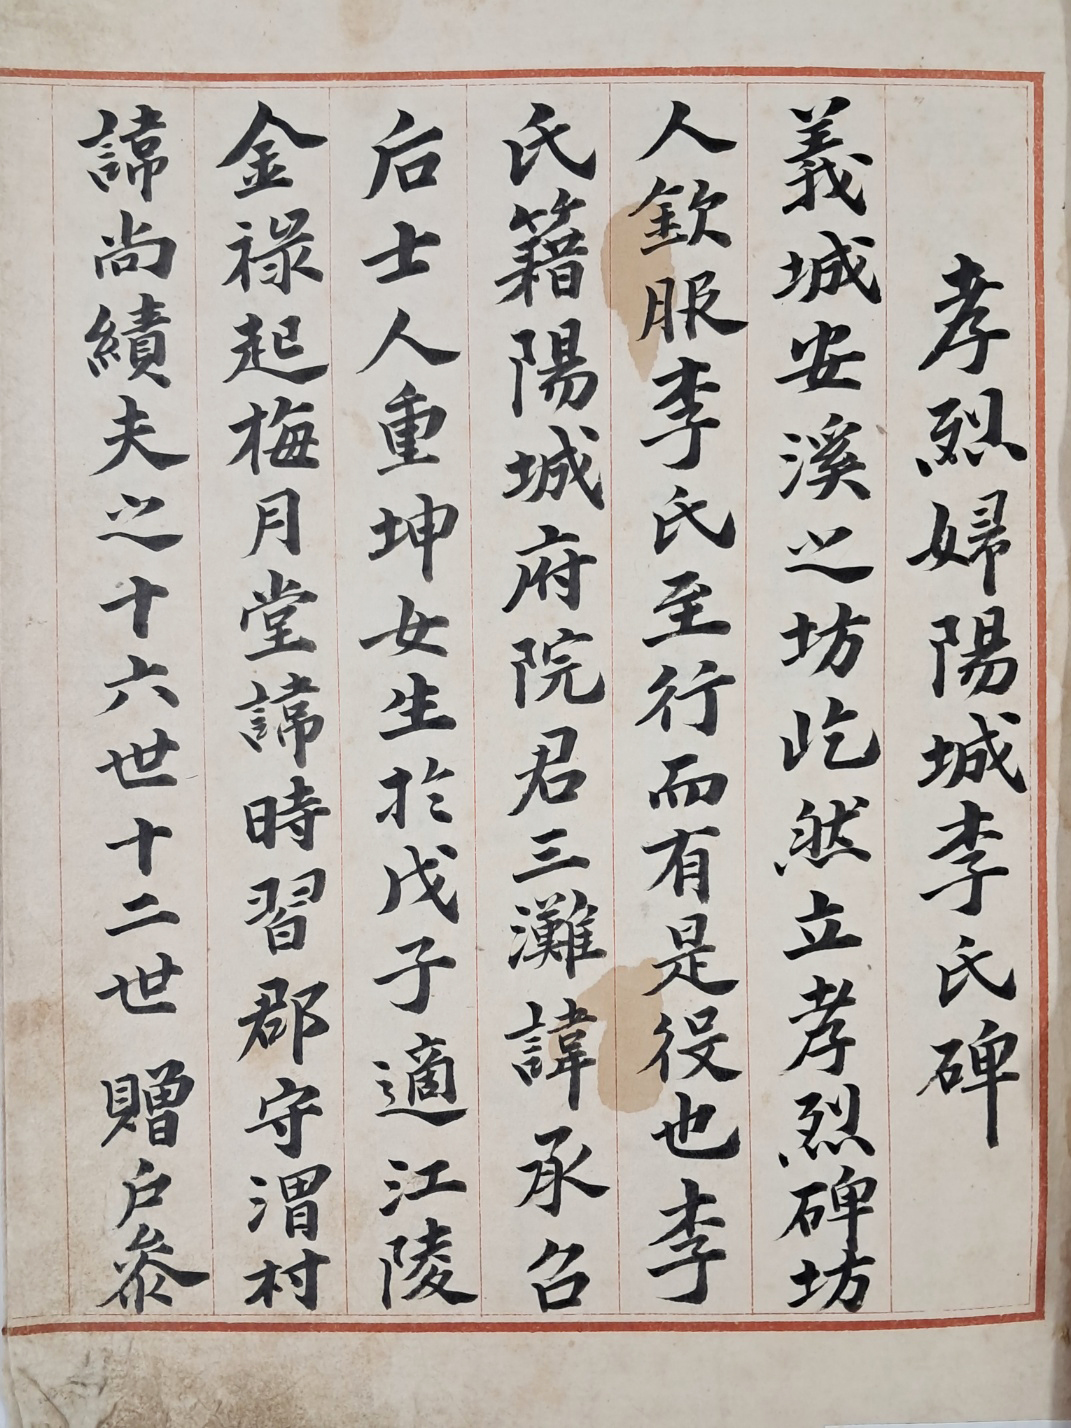 孝烈婦陽城李氏碑
義城安溪之坊屹然立孝烈碑坊
人欽服李氏至行而有是役也李
氏籍陽城府院君三灘諱承召
后士人重坤女生於戊子適江陵
金祿起梅月堂諱時習郡守渭村
諱尚績夫之十六世十二世贈戶參